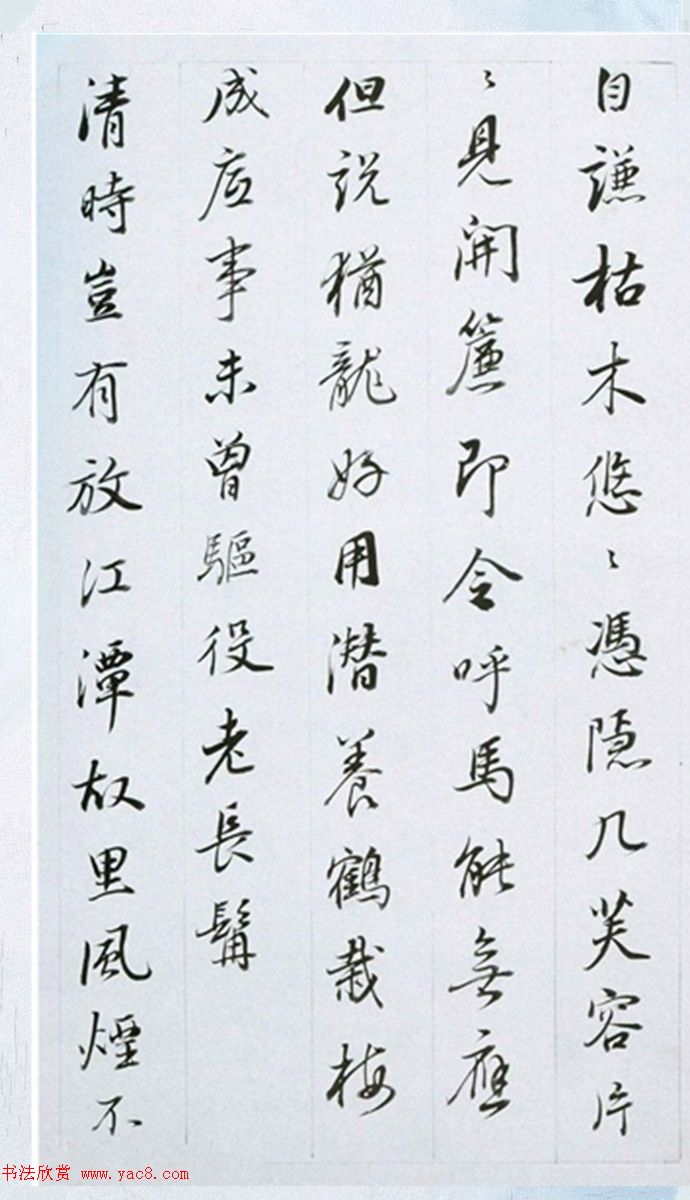 自謙枯木悠〻憑隠几芙容片
〻見開簾即令呼馬能無應
但説猶龍好用潜養鶴栽梅
成底事未曾驅役老長髯
清時豈有放江潭故里風煙不
书法欣赏 www.yac8.com